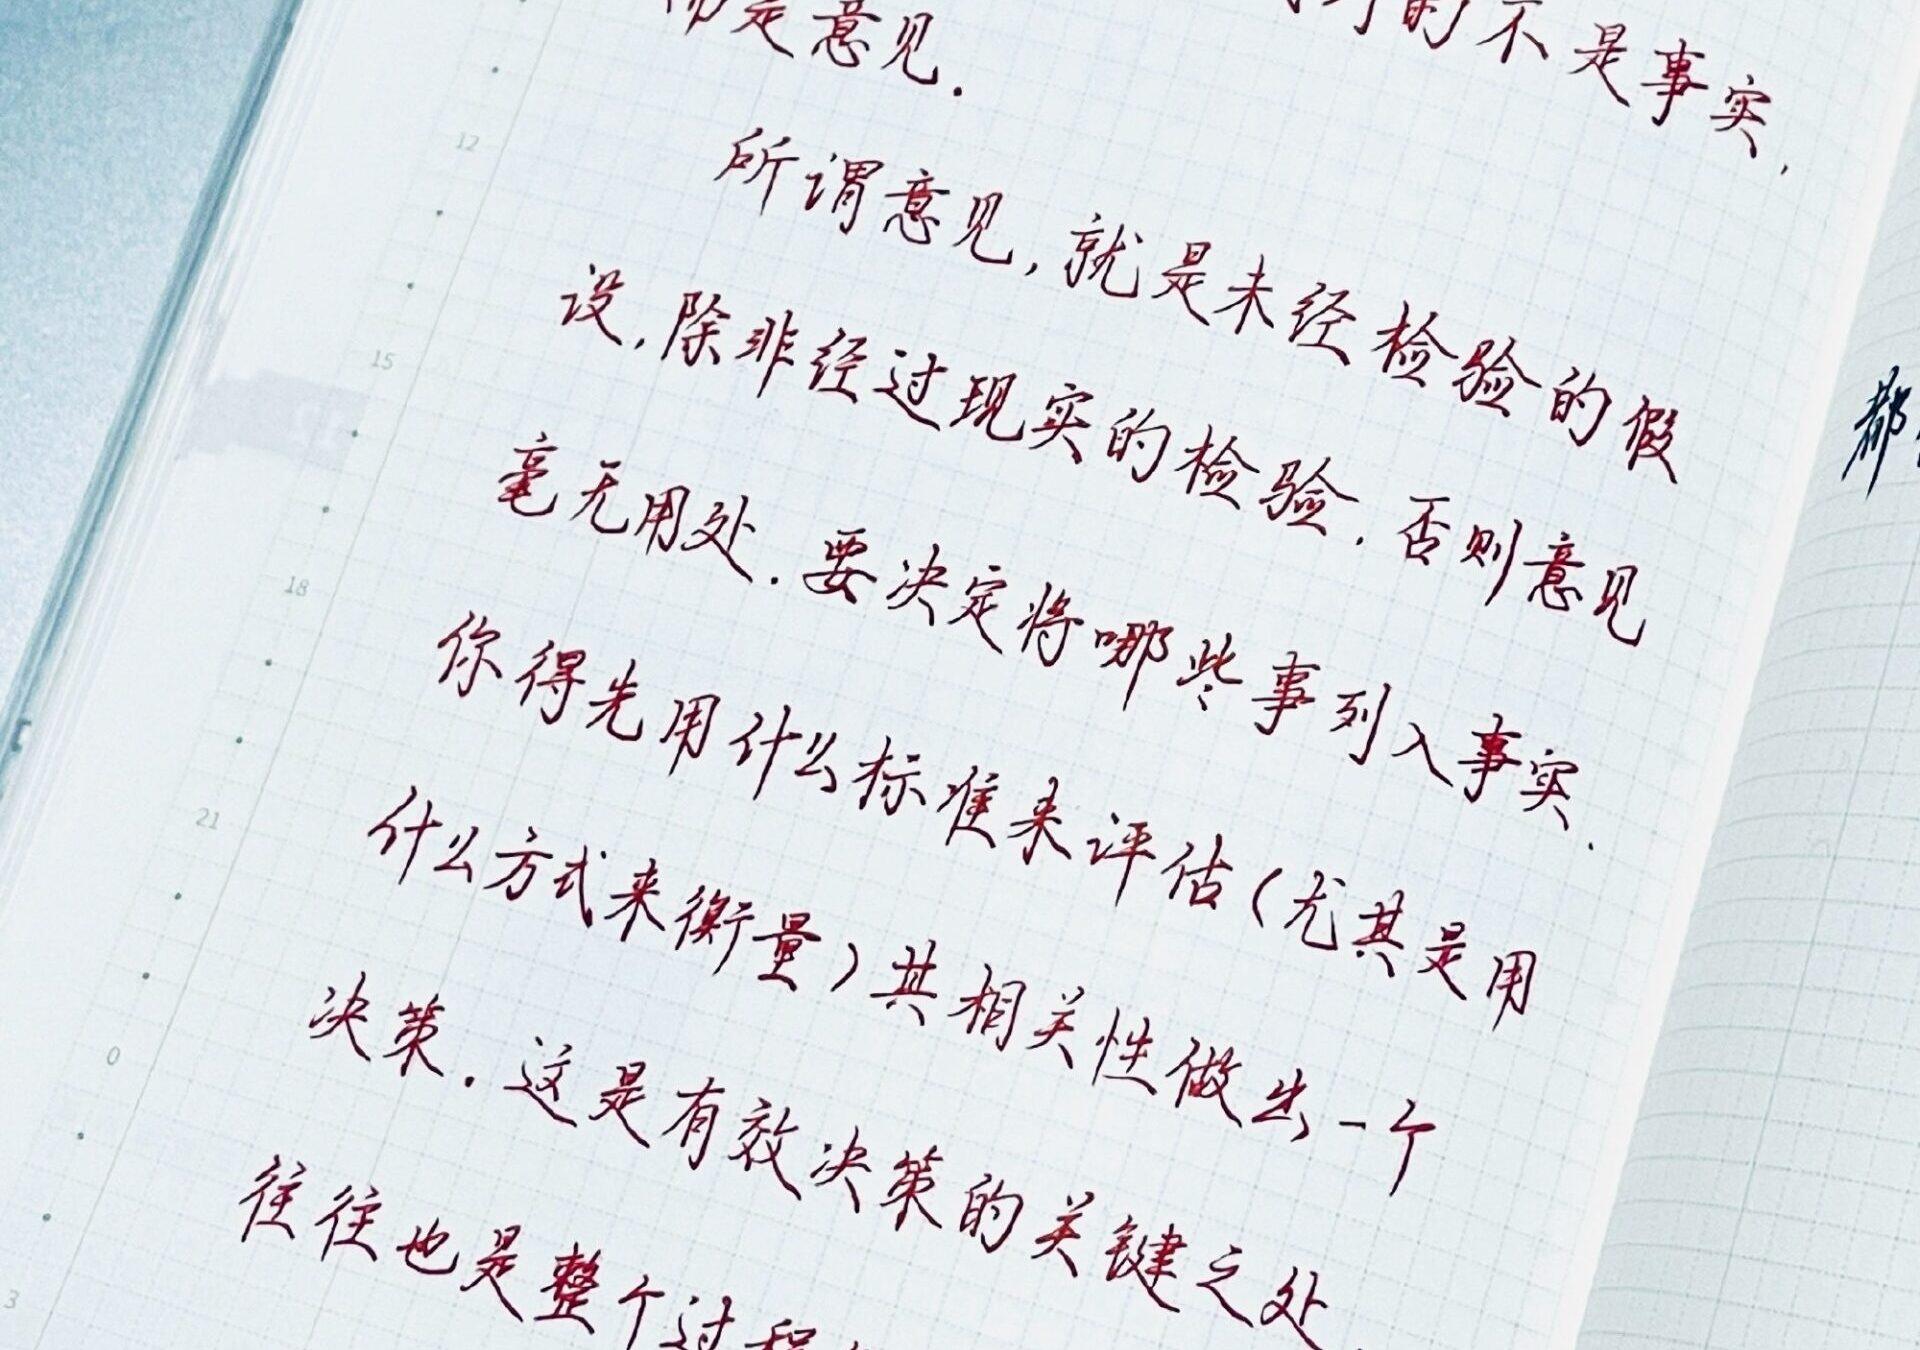 的不是事实，
而是意见.
所谓意见，就是未经检验的假
设，除非经过现实的检验，否则意见
毫无用处.要决定将哪些事列入事实.
你得先用什么标准来评估(尤其是用
什么方式来衡量)其相关性做出一个
决策.这是有效决策的关键之处，
往往也是整个过程
12
15
18
21
0
3
都